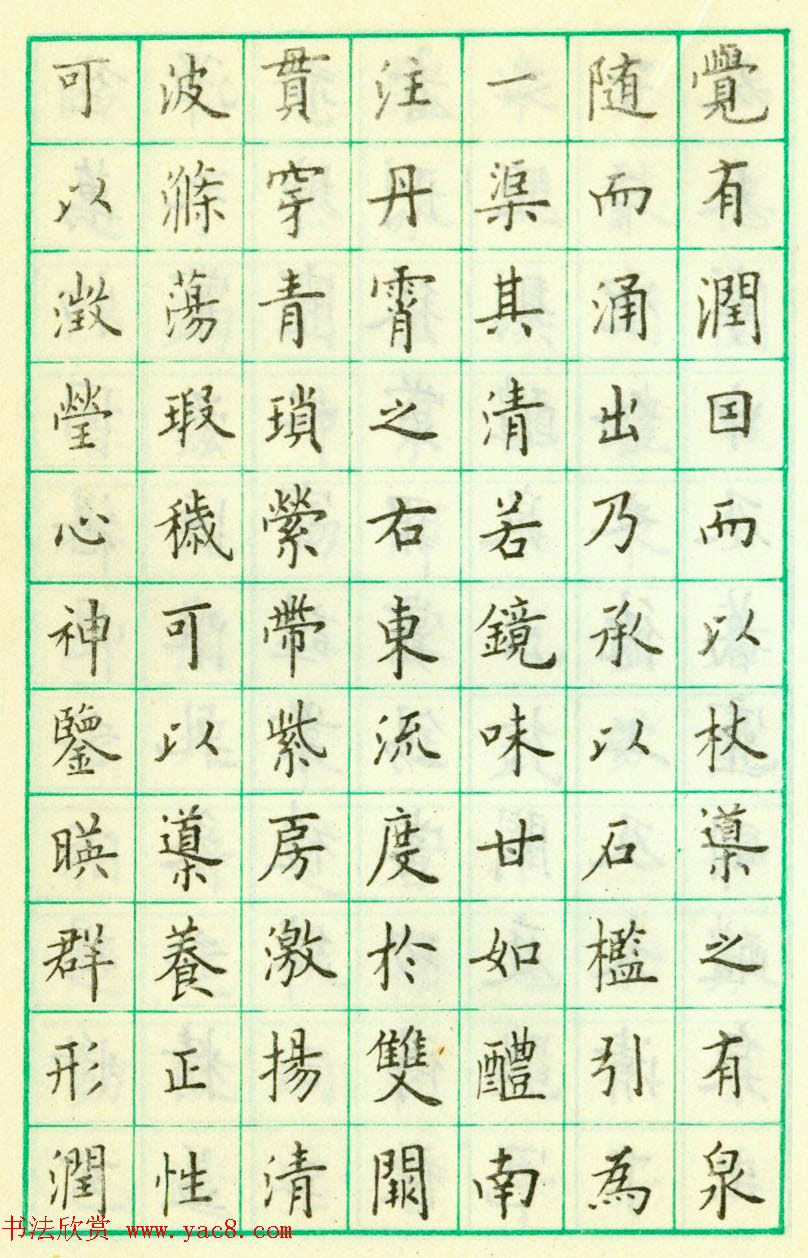 覺有潤因而以杖導之有泉
随而涌出乃承以石檻引為
一渠其清若鏡味甘如醴南
注丹霄之右東流度於雙闕
貫穿青瑣縈帶紫房激揚清
波滌蕩瑕穢可以導養正性
可以澂瑩心神鑒暎群形潤
书法欣赏 www.yac8.com